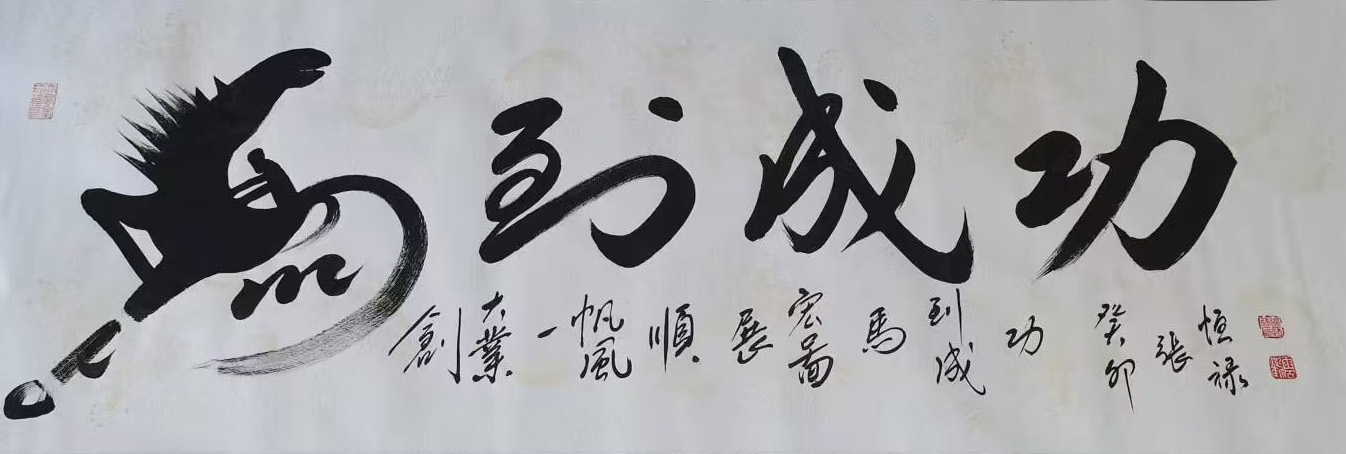 馬到成功
創大業一帆風順展宏圖馬到成功
癸卯 張恒禄